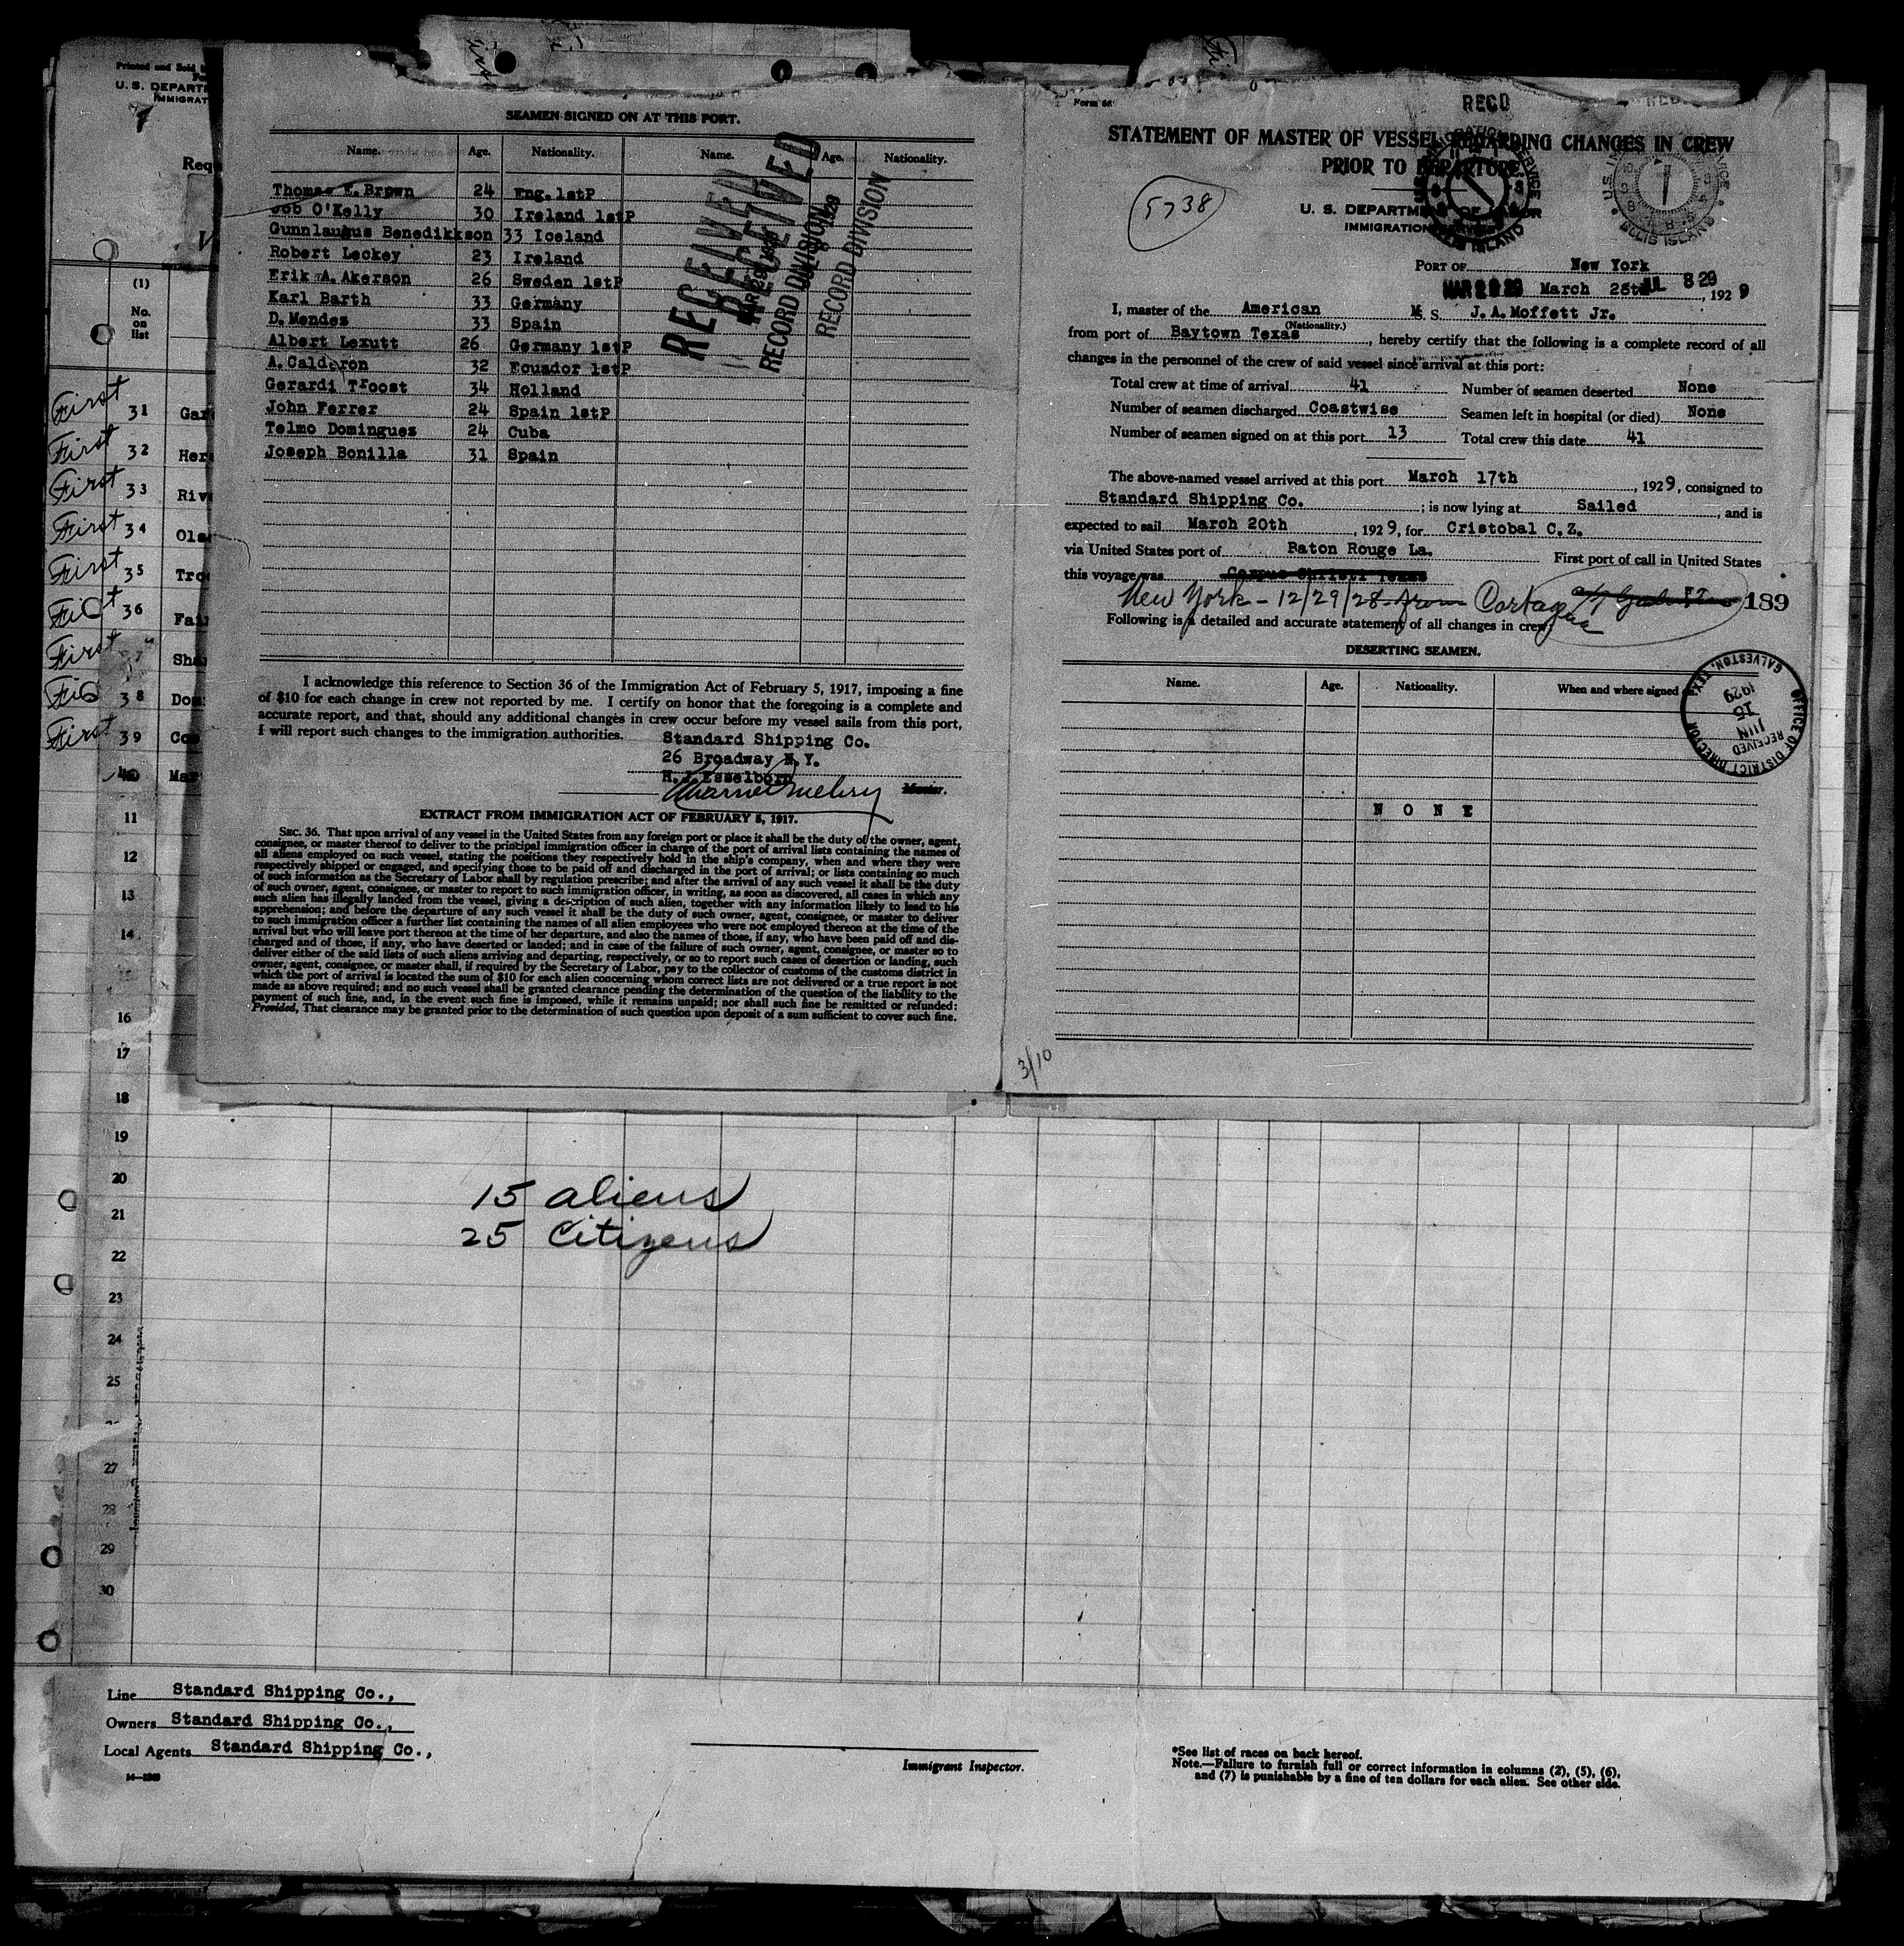 Printed and Sold
U. S. DEPARTM
IMMIGRAT
(1)
No.
on
list
First 31 Gar
First 32 Her
First 33 Riv
First 34 Ols
First 35 Tro
36 Fai
First Sha
38 Dom
First 39
40 Mar
11
12
13
14
16
17
18
19
20
21
22
23
24
25
27
28
29
30
SEAMEN SIGNED ON AT THIS PORT.
Name. Age. Nationality. Name. Age. Nationality.
Thomas E. Brown 24 Eng. 1stP
Job O'Kelly 30 Ireland 1stP
Gunnlaugus Benedikkson 33 Iceland
Robert Leckey 23 Ireland
Erik A. Akerson 26 Sweden 1stP
Karl Barth 33 Germany
D. Mendez 33 Spain
Albert Lexutt 26 Germany 1stP
A. Calderon 32 Ecuador 1stP
Gerardi Troost 34 Holland
John Ferrer 24 Spain 1stP
Telmo Dominguez 24 Cuba
Joseph Bonilla 31 Spain
RECEIVED
RECEIVED
RECORD DIVISION
RECORD DIVISION
I acknowledge this reference to Section 36 of the Immigration Act of February 5, 1917, imposing a fine
of $10 for each change in crew not reported by me. I certify on honor that the foregoing is a complete and
accurate report, and that, should any additional changes in crew occur before my vessel sails from this port,
I will report such changes to the immigration authorities.
Standard Shipping Co.
26 Broadway N.Y.
H. J. Esselborn
Master.
EXTRACT FROM IMMIGRATION ACT OF FEBRUARY 5, 1917.
SEC. 36. That upon arrival of any vessel in the United States from any foreign port or place it shall be the duty of the owner, agent,
consignee, or master thereof to deliver to the principal immigration officer in charge of the port of arrival lists containing the names of
all aliens employed on such vessel, stating the positions they respectively hold in the ship's company, when and where they were
respectively shipped or engaged, and specifying those to be paid off and discharged in the port of arrival; or lists containing so much
of such information as the Secretary of Labor shall by regulation prescribe; and after the arrival of any such vessel it shall be the duty
of such owner, agent, consignee, or master to report to such immigration officer, in writing, as soon as discovered, all cases in which any
such alien has illegally landed from the vessel, giving a description of such alien, together with any information likely to lead to his
apprehension; and before the departure of any such vessel it shall be the duty of such owner, agent, consignee, or master to deliver
to such immigration officer a further list containing the names of all alien employees who were not employed thereon at the time of the
arrival but who will leave port thereon at the time of her departure, and also the names of those, if any, who have been paid off and dis-
charged and of those, if any, who have deserted or landed; and in case of the failure of such owner, agent, consignee, or master so to
deliver either of the said lists of such aliens arriving and departing, respectively, or so to report such cases of desertion or landing, such
owner, agent, consignee, or master shall, if required by the Secretary of Labor, pay to the collector of customs of the customs district in
which the port of arrival is located the sum of $10 for each alien concerning whom correct lists are not delivered or a true report is not
made as above required; and no such vessel shall be granted clearance pending the determination of the question of the liability to the
payment of such fine, and, in the event such fine is imposed, while it remains unpaid; nor shall such fine be remitted or refunded:
Provided, That clearance may be granted prior to the determination of such question upon deposit of a sum sufficient to cover such fine.
RECD
STATEMENT OF MASTER OF VESSEL REGARDING CHANGES IN CREW
PRIOR TO DEPARTURE.
5738
U. S. DEPARTMENT OF LABOR
IMMIGRATION SERVICE
ELLIS ISLAND
ELLIS ISLAND
PORT OF New York
March 26th, 1929
MAR 29 29
JUL 8 29
I, master of the American M. S. J. A. Moffett Jr.
(Nationality.)
from port of Baytown Texas, hereby certify that the following is a complete record of all
changes in the personnel of the crew of said vessel since arrival at this port:
Total crew at time of arrival 41 Number of seamen deserted None
Number of seamen discharged Coastwise Seamen left in hospital (or died) None
Number of seamen signed on at this port 13 Total crew this date 41
The above-named vessel arrived at this port March 17th, 1929, consigned to
Standard Shipping Co.; is now lying at Sailed, and is
expected to sail March 20th, 1929, for Cristobal C.Z.
via United States port of Baton Rouge La. First port of call in United States
this voyage was Corpus Christi Texas
New York - 12/29/28 from Cartagena 189
Following is a detailed and accurate statement of all changes in crew:
DESERTING SEAMEN.
Name. Age. Nationality. When and where signed
NONE
OFFICE OF DISTRICT DIRECTOR
RECEIVED
JUN 15 1929
GALVESTON, TEX.
3/10
15 aliens
25 Citizens
Line Standard Shipping Co.,
Owners Standard Shipping Co.,
Local Agents Standard Shipping Co.,
Immigrant Inspector.
*See list of races on back hereof.
Note.—Failure to furnish full or correct information in columns (2), (5), (6),
and (7) is punishable by a fine of ten dollars for each alien. See other side.